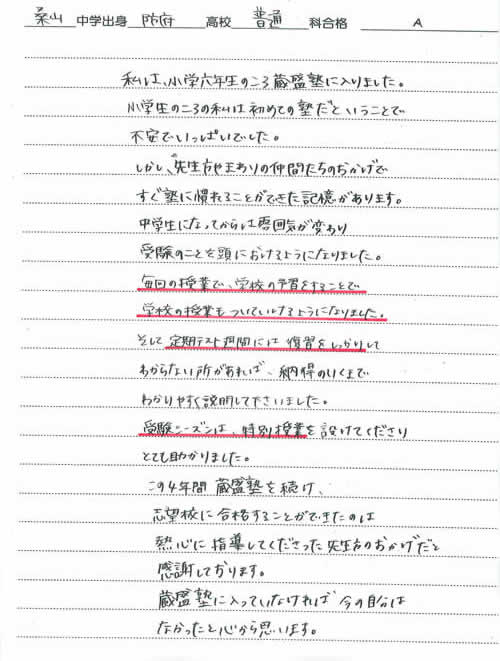 桑山 中学出身 防府 高校 普通 科合格 A
私は、小学六年生のころ蔵盛塾に入りました。
小学生のころの私は初めての塾だということで
不安でいっぱいでした。
しかし、先生方やまわりの仲間たちのおかげで
すぐ塾に慣れることができた記憶があります。
中学生になってからは雰囲気が変わり
受験のことを頭におけるようになりました。
毎回の授業で、学校の予習をすることで
学校の授業もついていけるようになりました。
そして定期テスト週間には復習をしっかりして
わからない所があれば、納得のいくまで
わかりやすく説明して下さいました。
受験シーズンは、特別授業を設けてくださり
とても助かりました。
この4年間 蔵盛塾を続け、
志望校に合格することができたのは
熱心に指導してくださった先生方のおかげだと
感謝しております。
蔵盛塾に入っていなければ今の自分は
なかったと心から思います。